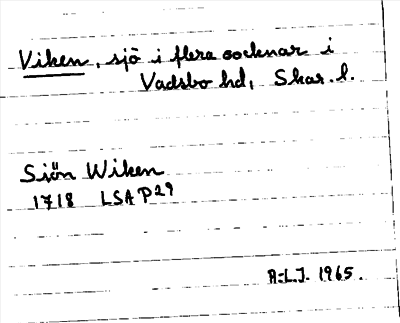 Viken, sjö i flera socknar i
Vadsbo hd, Skar. l.
Sjön Wiken
1718 LSA P29
A-L.J. 1965.